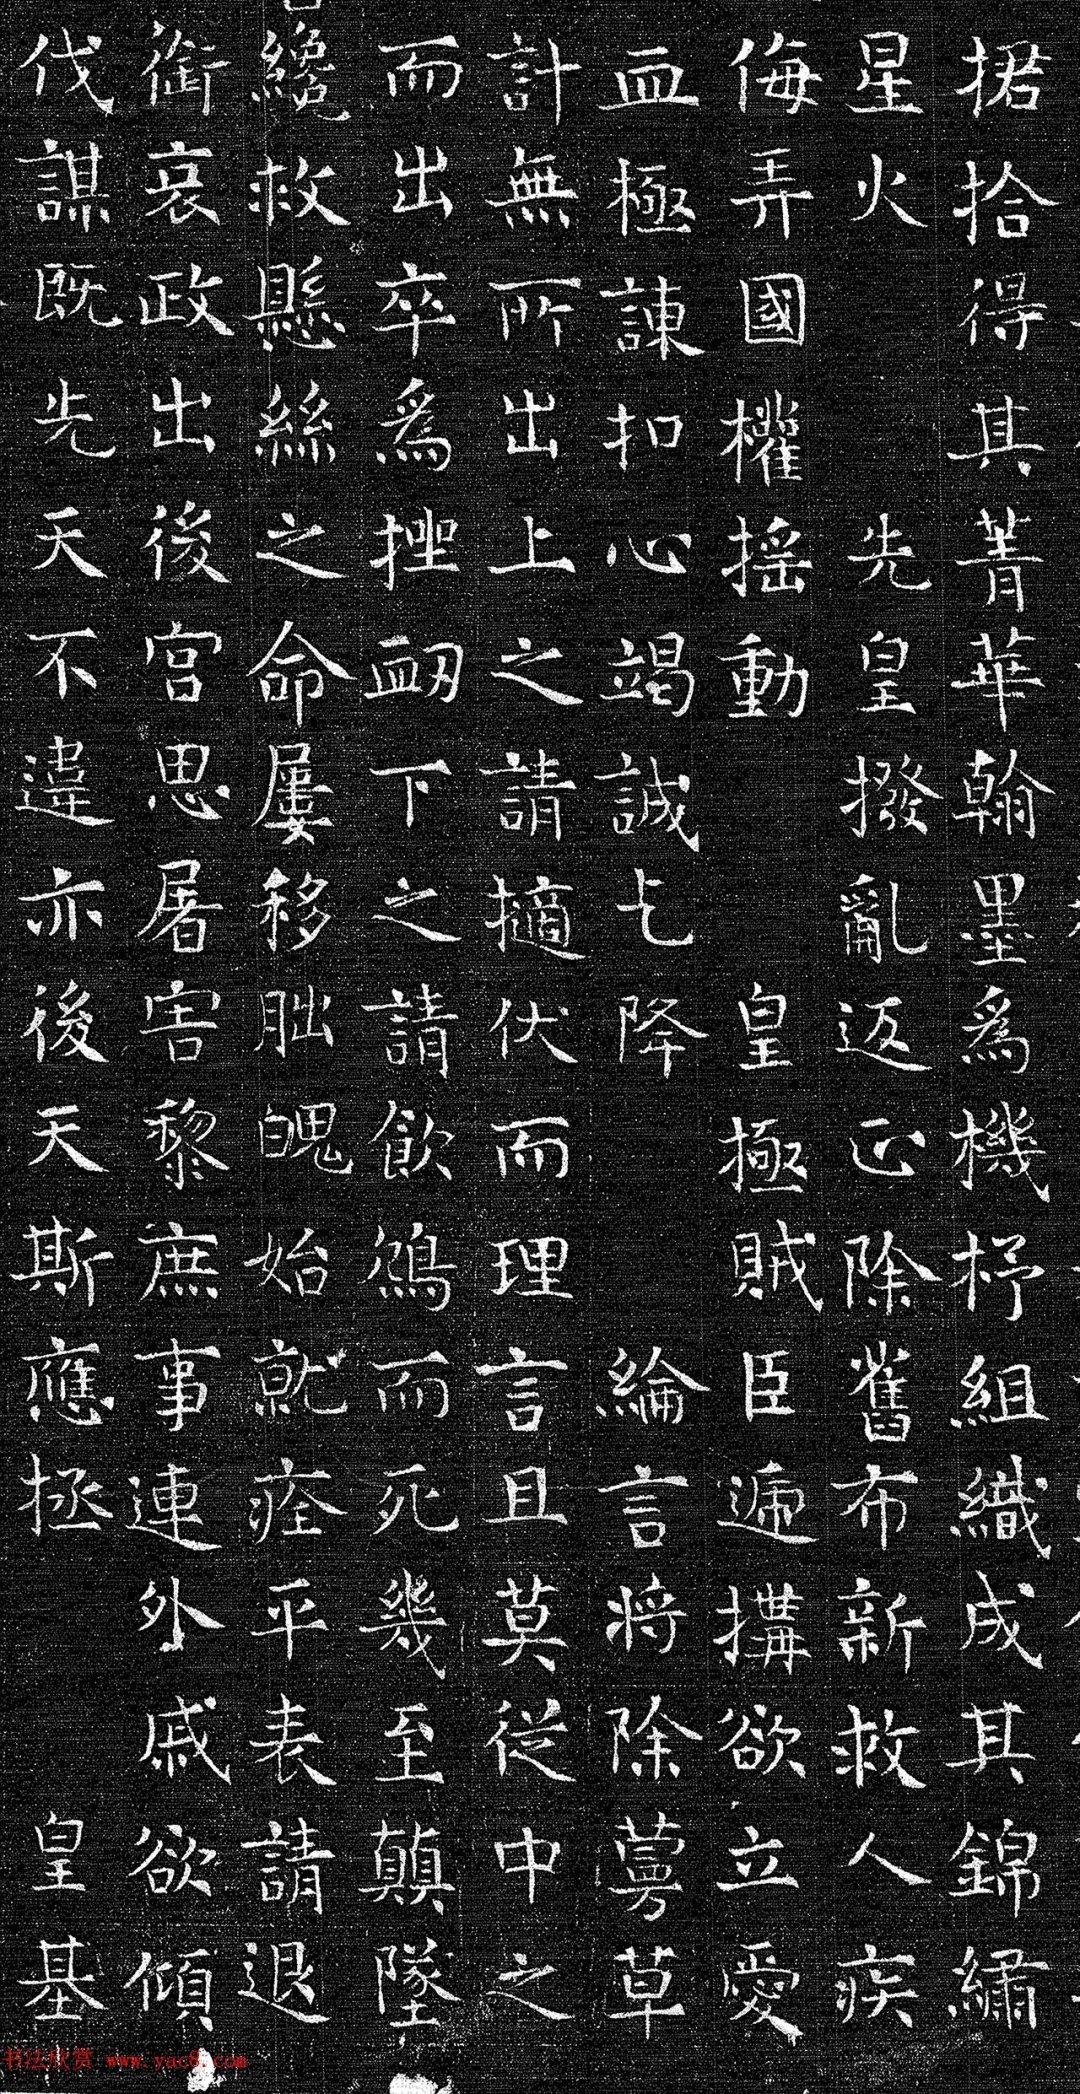 捃拾得其菁華翰墨爲機杼組織成其錦繡
星火先皇撥亂返正除舊布新救人疾
侮弄國權搖動皇極賊臣遞搆欲立愛
血極諫扣心竭誠乞降綸言將除蔓草
計無所出上之請擿伏而理言且莫從中之
而出卒爲挫衂下之請飲鴆而死幾至顛墜
纔救懸絲之命屢移朏魄始就痊平表請退
銜哀政出後宮思屠害黎庶事連外戚欲傾
伐謀既先天不違亦後天斯應拯皇基
书法欣赏 www.yac8.com